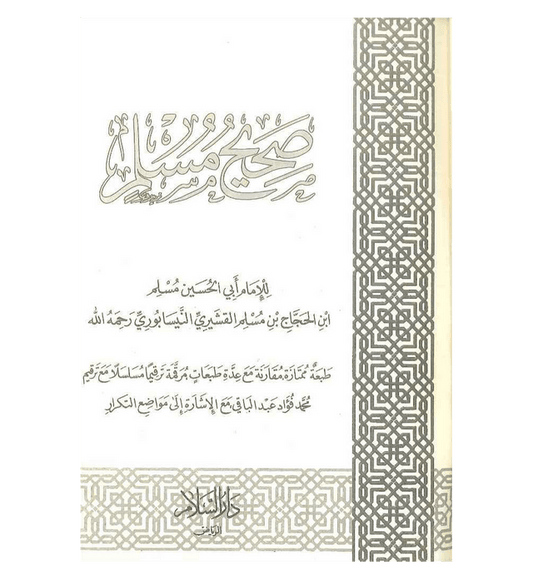 صحيح مسلم
للإمام أبي الحسين مسلم
ابن الحجاج بن مسلم القشيري النيسابوري رحمه الله
طبعة ممتازة مقارنة مع عدة طبعات مرقمة ترقيما مسلسلا مع ترقيم
محمد فؤاد عبد الباقي مع الإشارة إلى مواضع التكرار
دار السلام
الرياض